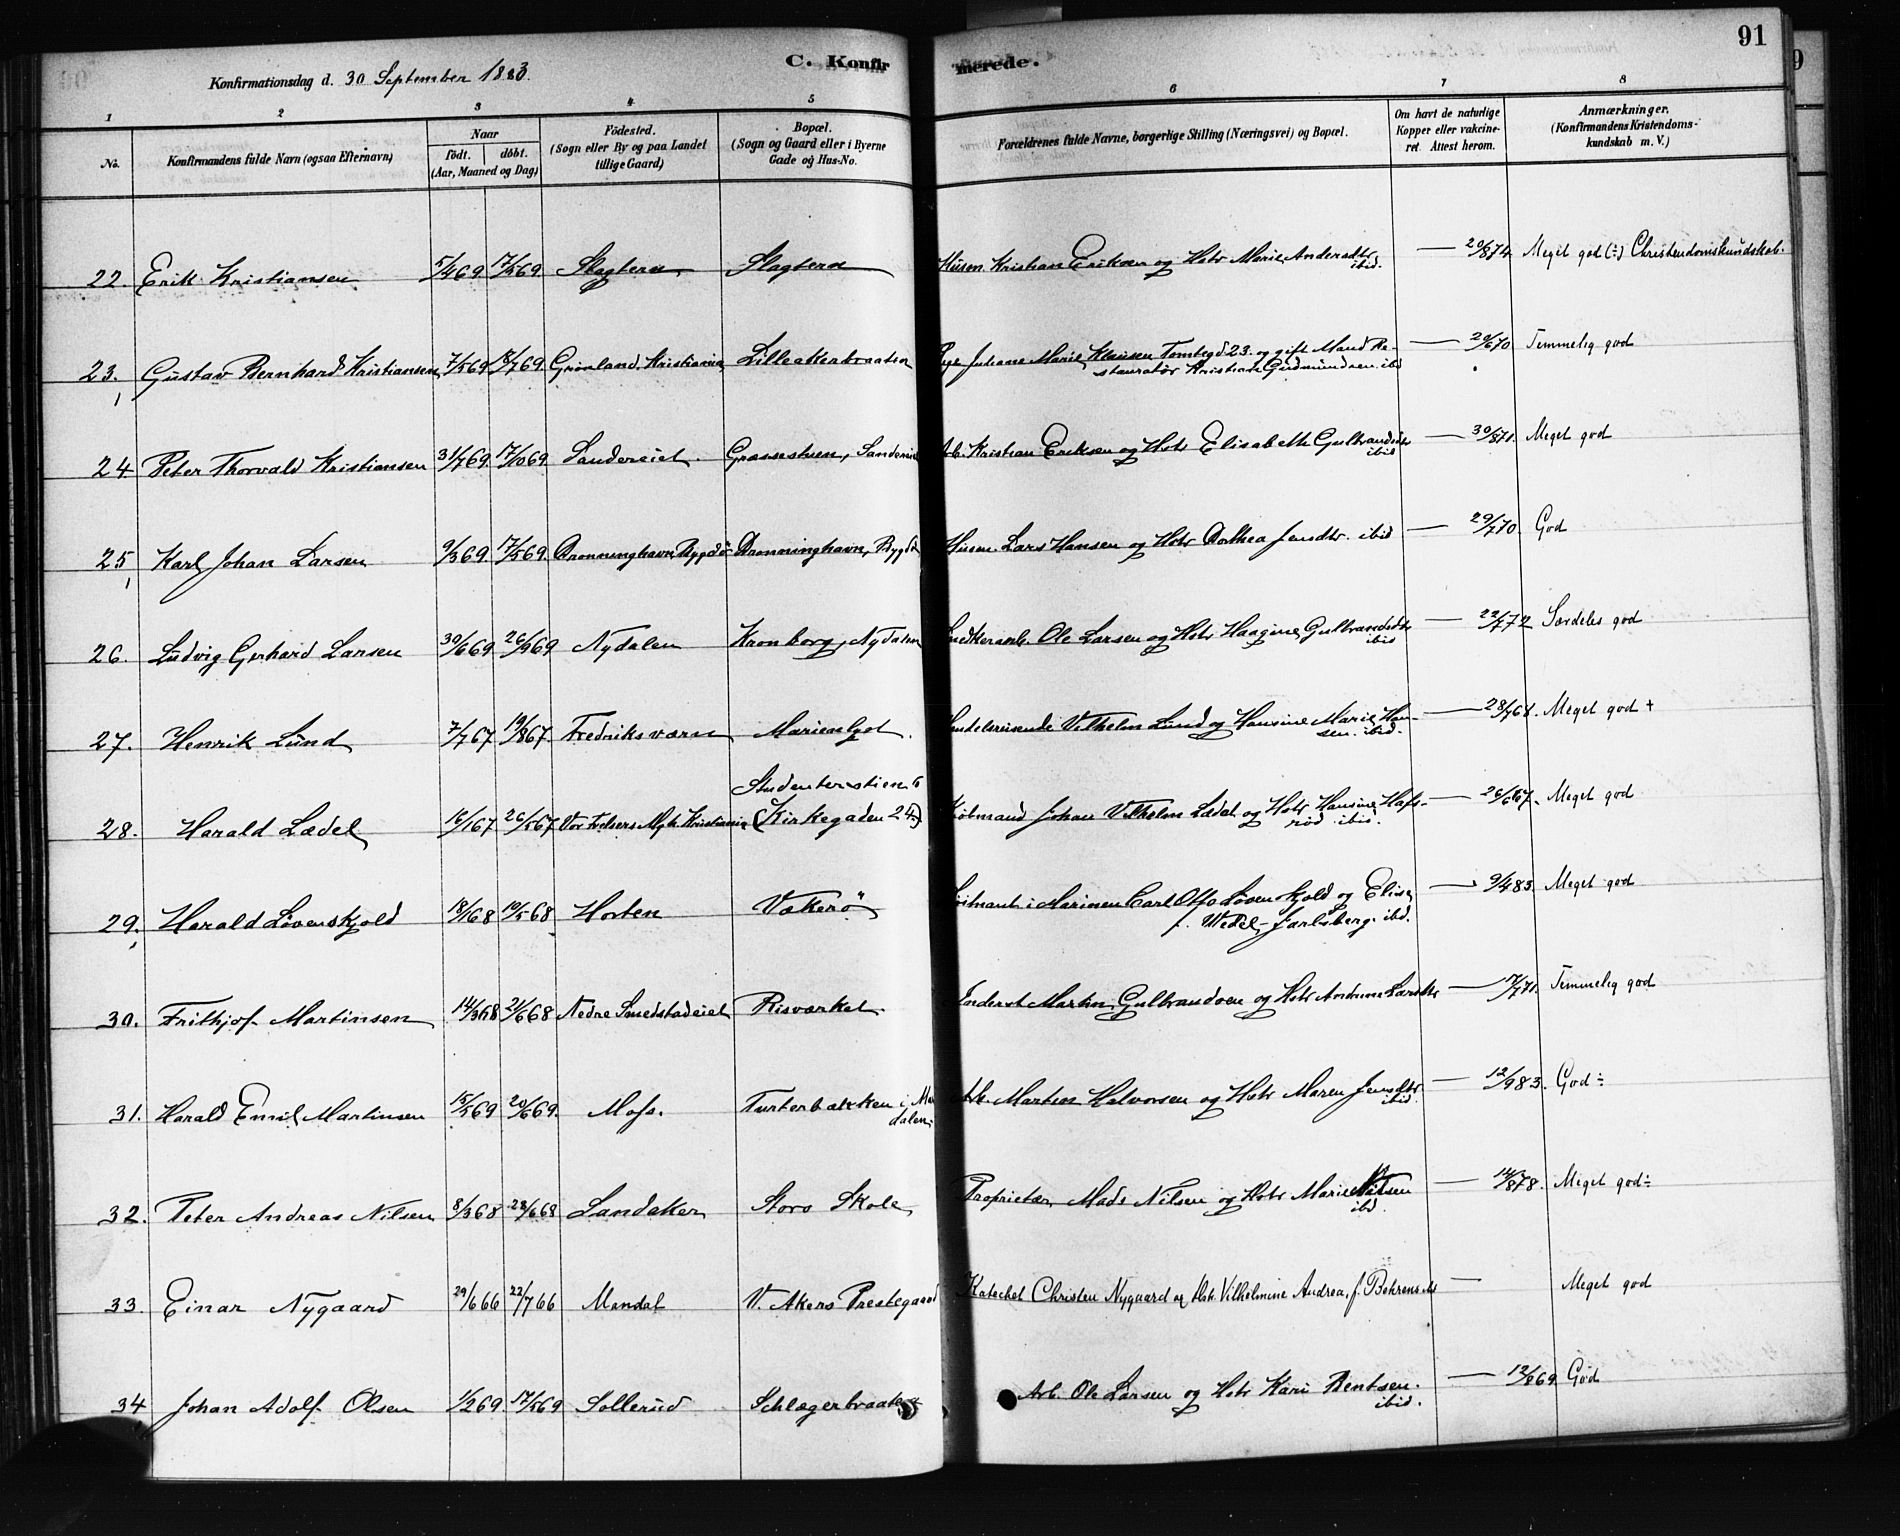 91
Konfirmationsdag d. 30 September 1883.
C. Konfirmerede.
1 2 3 4 5 6 7 8
No. Konfirmandens fulde Navn (ogsaa Efternavn) Naar født. døbt. (Aar, Maaned og Dag) Fødested. (Sogn eller By og paa Landet tillige Gaard) Bopæl. (Sogn og Gaard eller i Byerne Gade og Hus-No. Forældrenes fulde Navne, borgerlige Stilling (Næringsvei) og Bopæl. Om havt de naturlige Kopper eller vakcineret. Attest herom. Anmærkninger. (Konfirmandens Kristendomskundskab m. V.)
22. Erik Kristiansen 5/4 69 17/5 69 Slagtern Slagtern Husm Kristian Eriksen og Hstr Marie Andersdtr ibid. — 20/8 74. Meget god (÷) Christendomskundskab.
23. Gustav Bernhard Kristiansen 7/5 69 18/7 69 Grønland, Kristiania Lilleakerbraaten Pige Juliane Marie Klausen Tomtegd 23. og gift Mand Restauratør Kristian Gudmundsen ibd — 20/6 70 Temmelig god
24. Peter Thorvald Kristiansen 31/7 69 17/10 69 Sandereiet Græssestuen, Sandereiet Arb. Kristian Eriksen og Hstr Elisabeth Gulbrandsdtr ibid — 30/8 71. Meget god
25 Karl Johan Larsen 9/3 69 17/5 69 Dronninghavn, Bygdø Dronninghavn, Bygdø Husm. Lars Hansen og Hstr Dorthea Jensdtr. ibid — 29/7 70. God
26. Ludvig Gerhard Larsen 30/6 69 26/9 69 Nydalen Kronborg, Nydalen Snedkerarb. Ole Larsen og Hstr Haagine Gulbrandsdtr ibid — 22/7 72 Særdeles god
27. Henrik Lund 7/7 67 19/8 67. Fredriksværn Marienlyst. Handelsreisende Vilhelm Lund og Hansine Marie Hansen. ibid. — 28/7 68. Meget god +
28. Harald Lædel 16/1 67 26/5 67 Vor Frelsers Mgh. Kristiania Studenterstien 6 (Kirkegaden 24) Kjøbmand Johan Vilhelm Lædel og Hstr Hansine Hafsrød ibid. — 26/6 67. Meget god
29. Harald Løvenskjold 18/1 68 19/5 68 Horten Vækerø Løitnant i Marinen Carl Otto Løvenskjold og Elise f. Wedel-Jarlsberg. ibd. — 9/4 83. Meget god
30. Frithjof Martinsen 14/3 68 21/6 68 Nedre Smedstadeiet Risværket. Inderst Martin Gulbrandsen og Hstr Andrine Larsdtr — 17/7 71. Temmelig god
31. Harald Emil Martinsen 15/5 69 20/6 69. Moss. Turterbakken i Maridalen. Arb. Martin Halvorsen og Hstr Maren Jensdtr ibid. — 12/9 83. God ÷
32. Peter Andreas Nilsen 8/3 68 28/6 68 Sandaker Storo Skole Proprietær Mads Nilsen og Hstr Marie Nilsen ibd. — 14/8 78. Meget god ÷
33. Einar Nygaard 29/6 66 22/7 66 Mandal V. Akers Prestegaard Katechet Christen Nygaard og Hstr. Vilhelmine Andrea, f. Behrens ibd — Meget god
34 Johan Adolf Olsen 1/2 69 17/5 69 Sollerud Schlægerbraaten Arb. Ole Larsen og Hstr Kari Bentsen. ibid. — 12/8 69 God